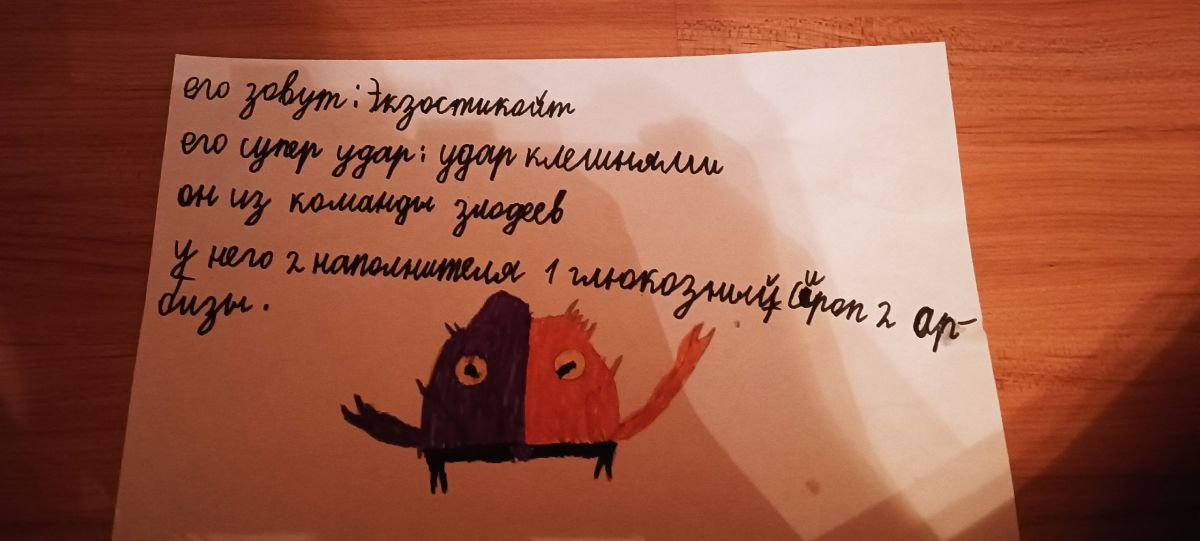 его зовут: Экзостикайт
его супер удар: удар клешнями
он из команды злодеев
у него 2 наполнителя 1 глюкозный сйроп 2 ар-
бизы.